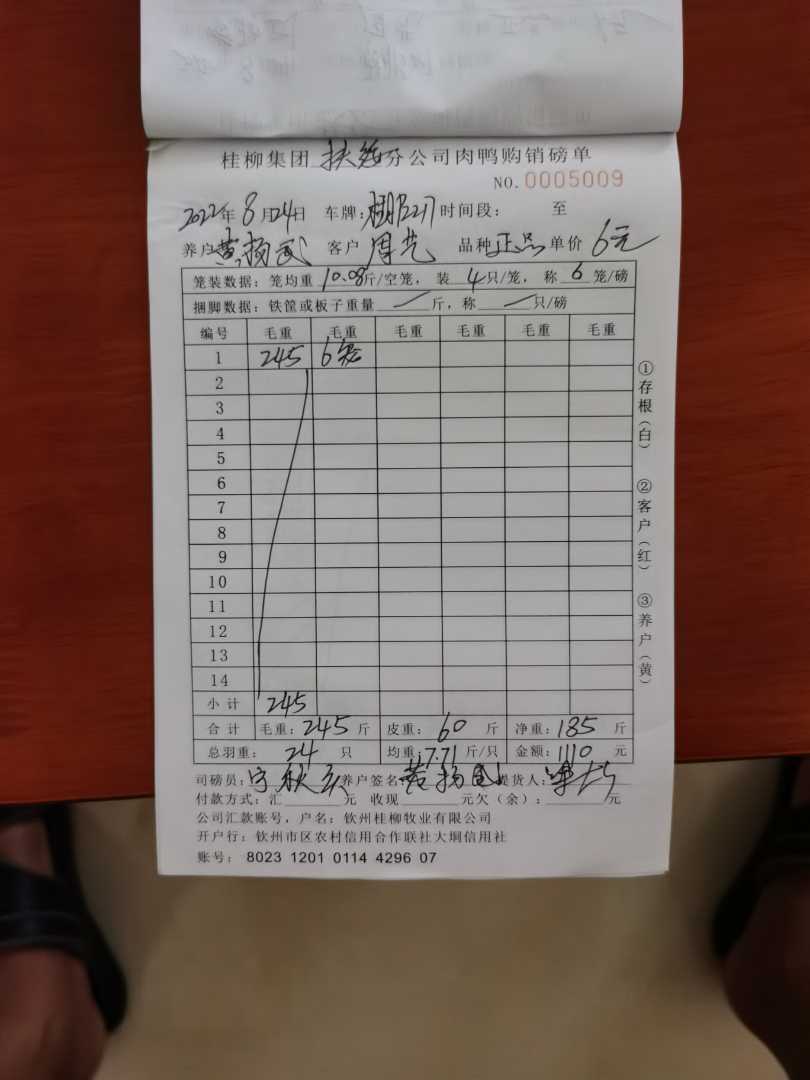 桂柳集团 扶绥分公司肉鸭购销磅单
NO.0005009
2022年8月24日 车牌: 时间段: 至
养户黄扬武 客户 周艺 品种正品单价6元
笼装数据:笼均重10.08斤/空笼,装4只/笼,称6笼/磅
捆脚数据:铁筐或板子重量 斤,称 只/磅
编号 毛重 毛重 毛重 毛重 毛重 毛重
1 245 6笼
2
3
4
5
6
7
8
9
10
11
12
13
14
小计 245
合计 毛重:245斤 皮重:60斤 净重:185斤
总羽重:24只 均重:7.71斤/只 金额:1110元
司磅员: 养户签名:黄扬武 提货人:
付款方式:汇 元 收现 元欠(余): 元
公司汇款账号,户名:钦州桂柳牧业有限公司
开户行:钦州市区农村信用合作联社大垌信用社
账号:8023 1201 0114 4296 07
①存根(白)
②客户(红)
③养户(黄)